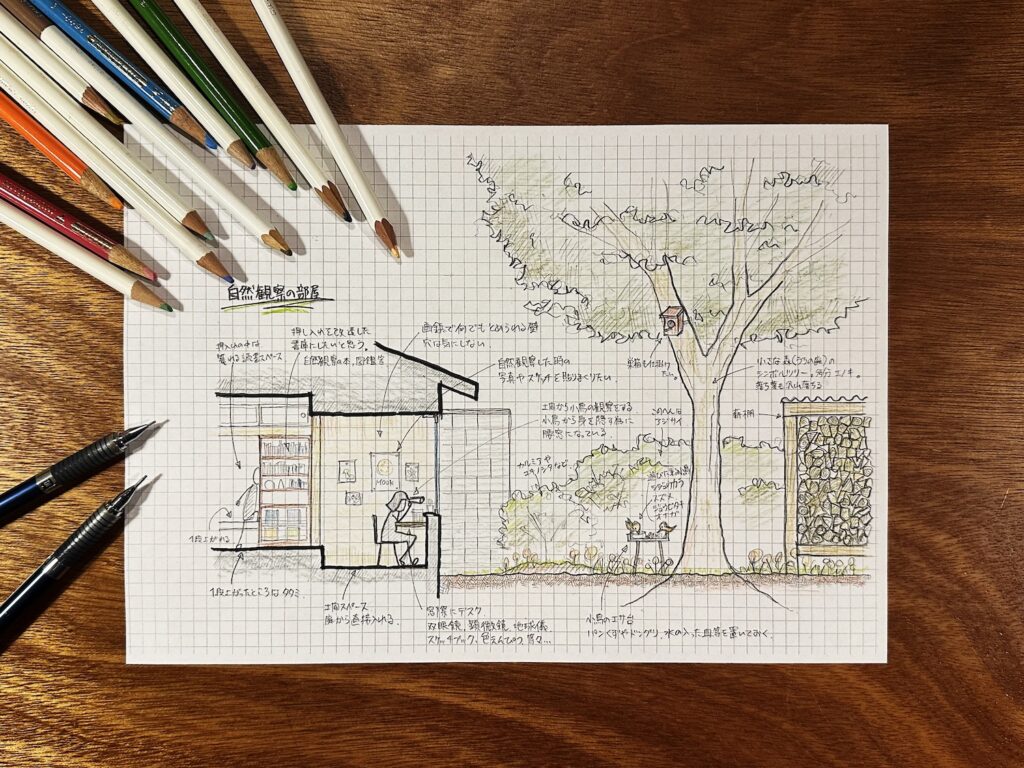 自然観察の部屋
押し入れを改造した
書庫にしたいと思う。
自然観察の本、図鑑等
画鋲で何でもとめられる壁
穴は気にしない
押入の中は
籠れる読書スペース
自然観察した時の
写真やスケッチを貼りまくりたい。
土間から小鳥の観察をする
小鳥から身を隠す為に
腰窓になっている
巣箱も仕掛け
たい。
このへんは
アジサイ
小さな森(うちの森)の
シンボルツリー。多分エノキ。
落ち葉も沢山落ちる
薪棚
カルミアや
ユキノシタなど。
遊びに来る小鳥
シジュウカラ
スズメ
ジョウビタキ
MOON
1段上がる
1段上がったところはタタミ。
土間スペース
庭から直接入れる。
窓際にデスク
双眼鏡、顕微鏡、地球儀、
スケッチブック、色えんぴつ、等々…
小鳥のエサ台
パンくずやドングリ、水の入った皿等を置いておく。